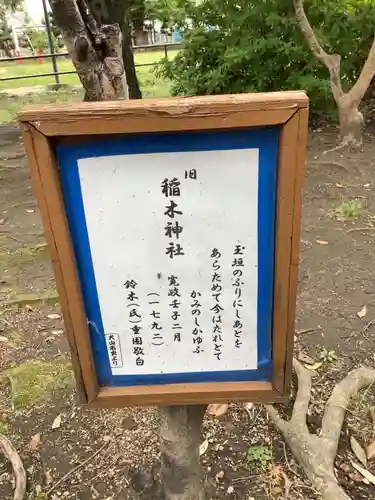 旧
稲木神社
玉垣のふりにしあとを
あらためて今はたれとて
かみのしかゆふ
寛政壬子二月
(一七九二)
鈴木(氏)重園敬白
犬山市史より